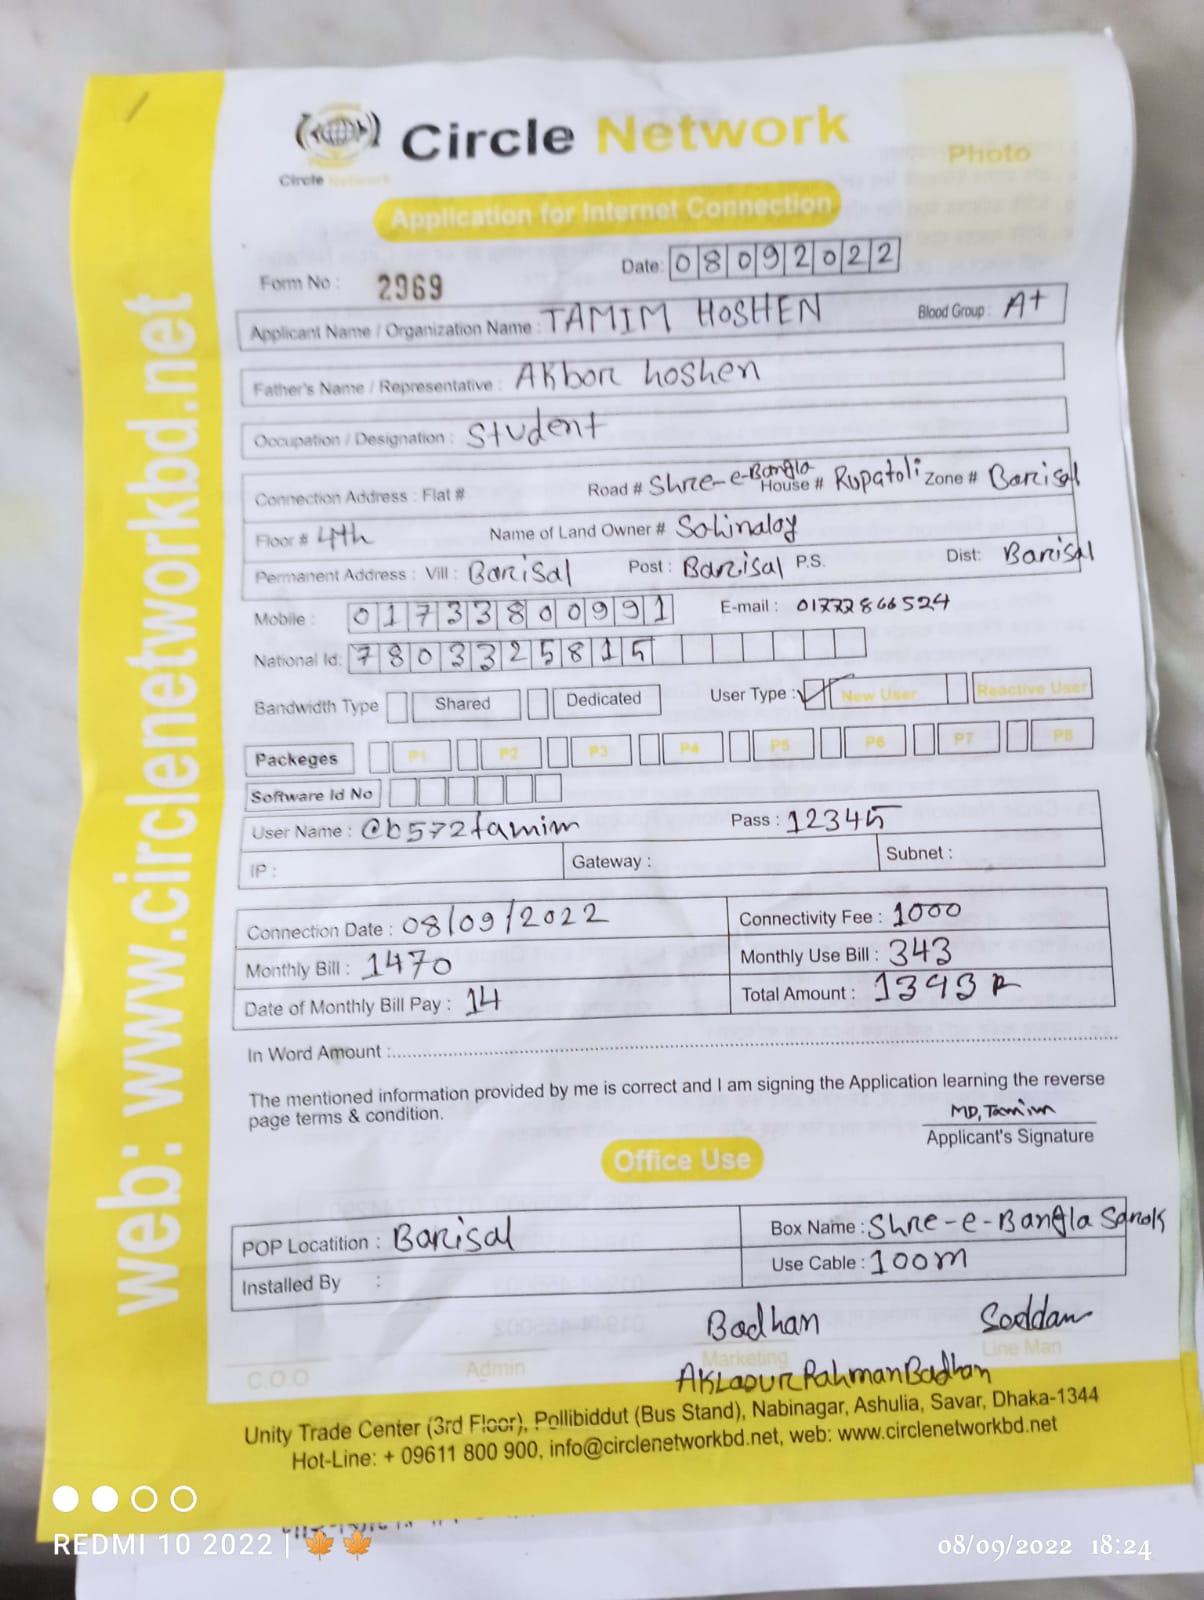 Circle Network
Circle Network
Photo
Application for Internet Connection
Form No : 2969
Date: 08092022
Applicant Name / Organization Name : TAMIM HOSHEN Blood Group : A+
Father's Name / Representative : Akbor hoshen
Occupation / Designation : Student
Connection Address : Flat # Road # Shre-e-Bangla House # Rupatoli Zone # Barisal
Floor # 4th Name of Land Owner #
Permanent Address : Vill : Barisal Post : Barisal P.S. Dist: Barisal
Mobile : 01733800991 E-mail : 01772866524
National Id: 7803325815
Bandwidth Type Shared Dedicated User Type : New User Reactive User
Packeges P1 P2 P3 P4 P5 P6 P7 P8
Software Id No
User Name : @b572tamim Pass : 12345
IP : Gateway : Subnet :
Connection Date : 08/09/2022 Connectivity Fee : 1000
Monthly Bill : 1470 Monthly Use Bill : 343
Date of Monthly Bill Pay : 14 Total Amount : 1343
In Word Amount :
The mentioned information provided by me is correct and I am signing the Application learning the reverse
page terms & condition.
MD, Tamim
Applicant's Signature
Office Use
POP Locatition : Barisal Box Name : Shre-e-Bangla Sarok
Installed By : Use Cable : 100m
Badhan Soddam
C.O.O Admin Marketing Line Man
Rahman Badhan
Unity Trade Center (3rd Floor), Pollibiddut (Bus Stand), Nabinagar, Ashulia, Savar, Dhaka-1344
Hot-Line: + 09611 800 900, info@circlenetworkbd.net, web: www.circlenetworkbd.net
web: www.circlenetworkbd.net
REDMI 10 2022 |
08/09/2022 18:24